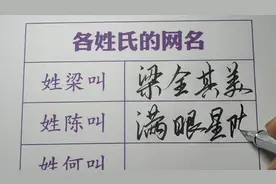 各姓氏的网名
姓梁叫 梁全其美
姓陈叫 满眼星陈
姓何叫